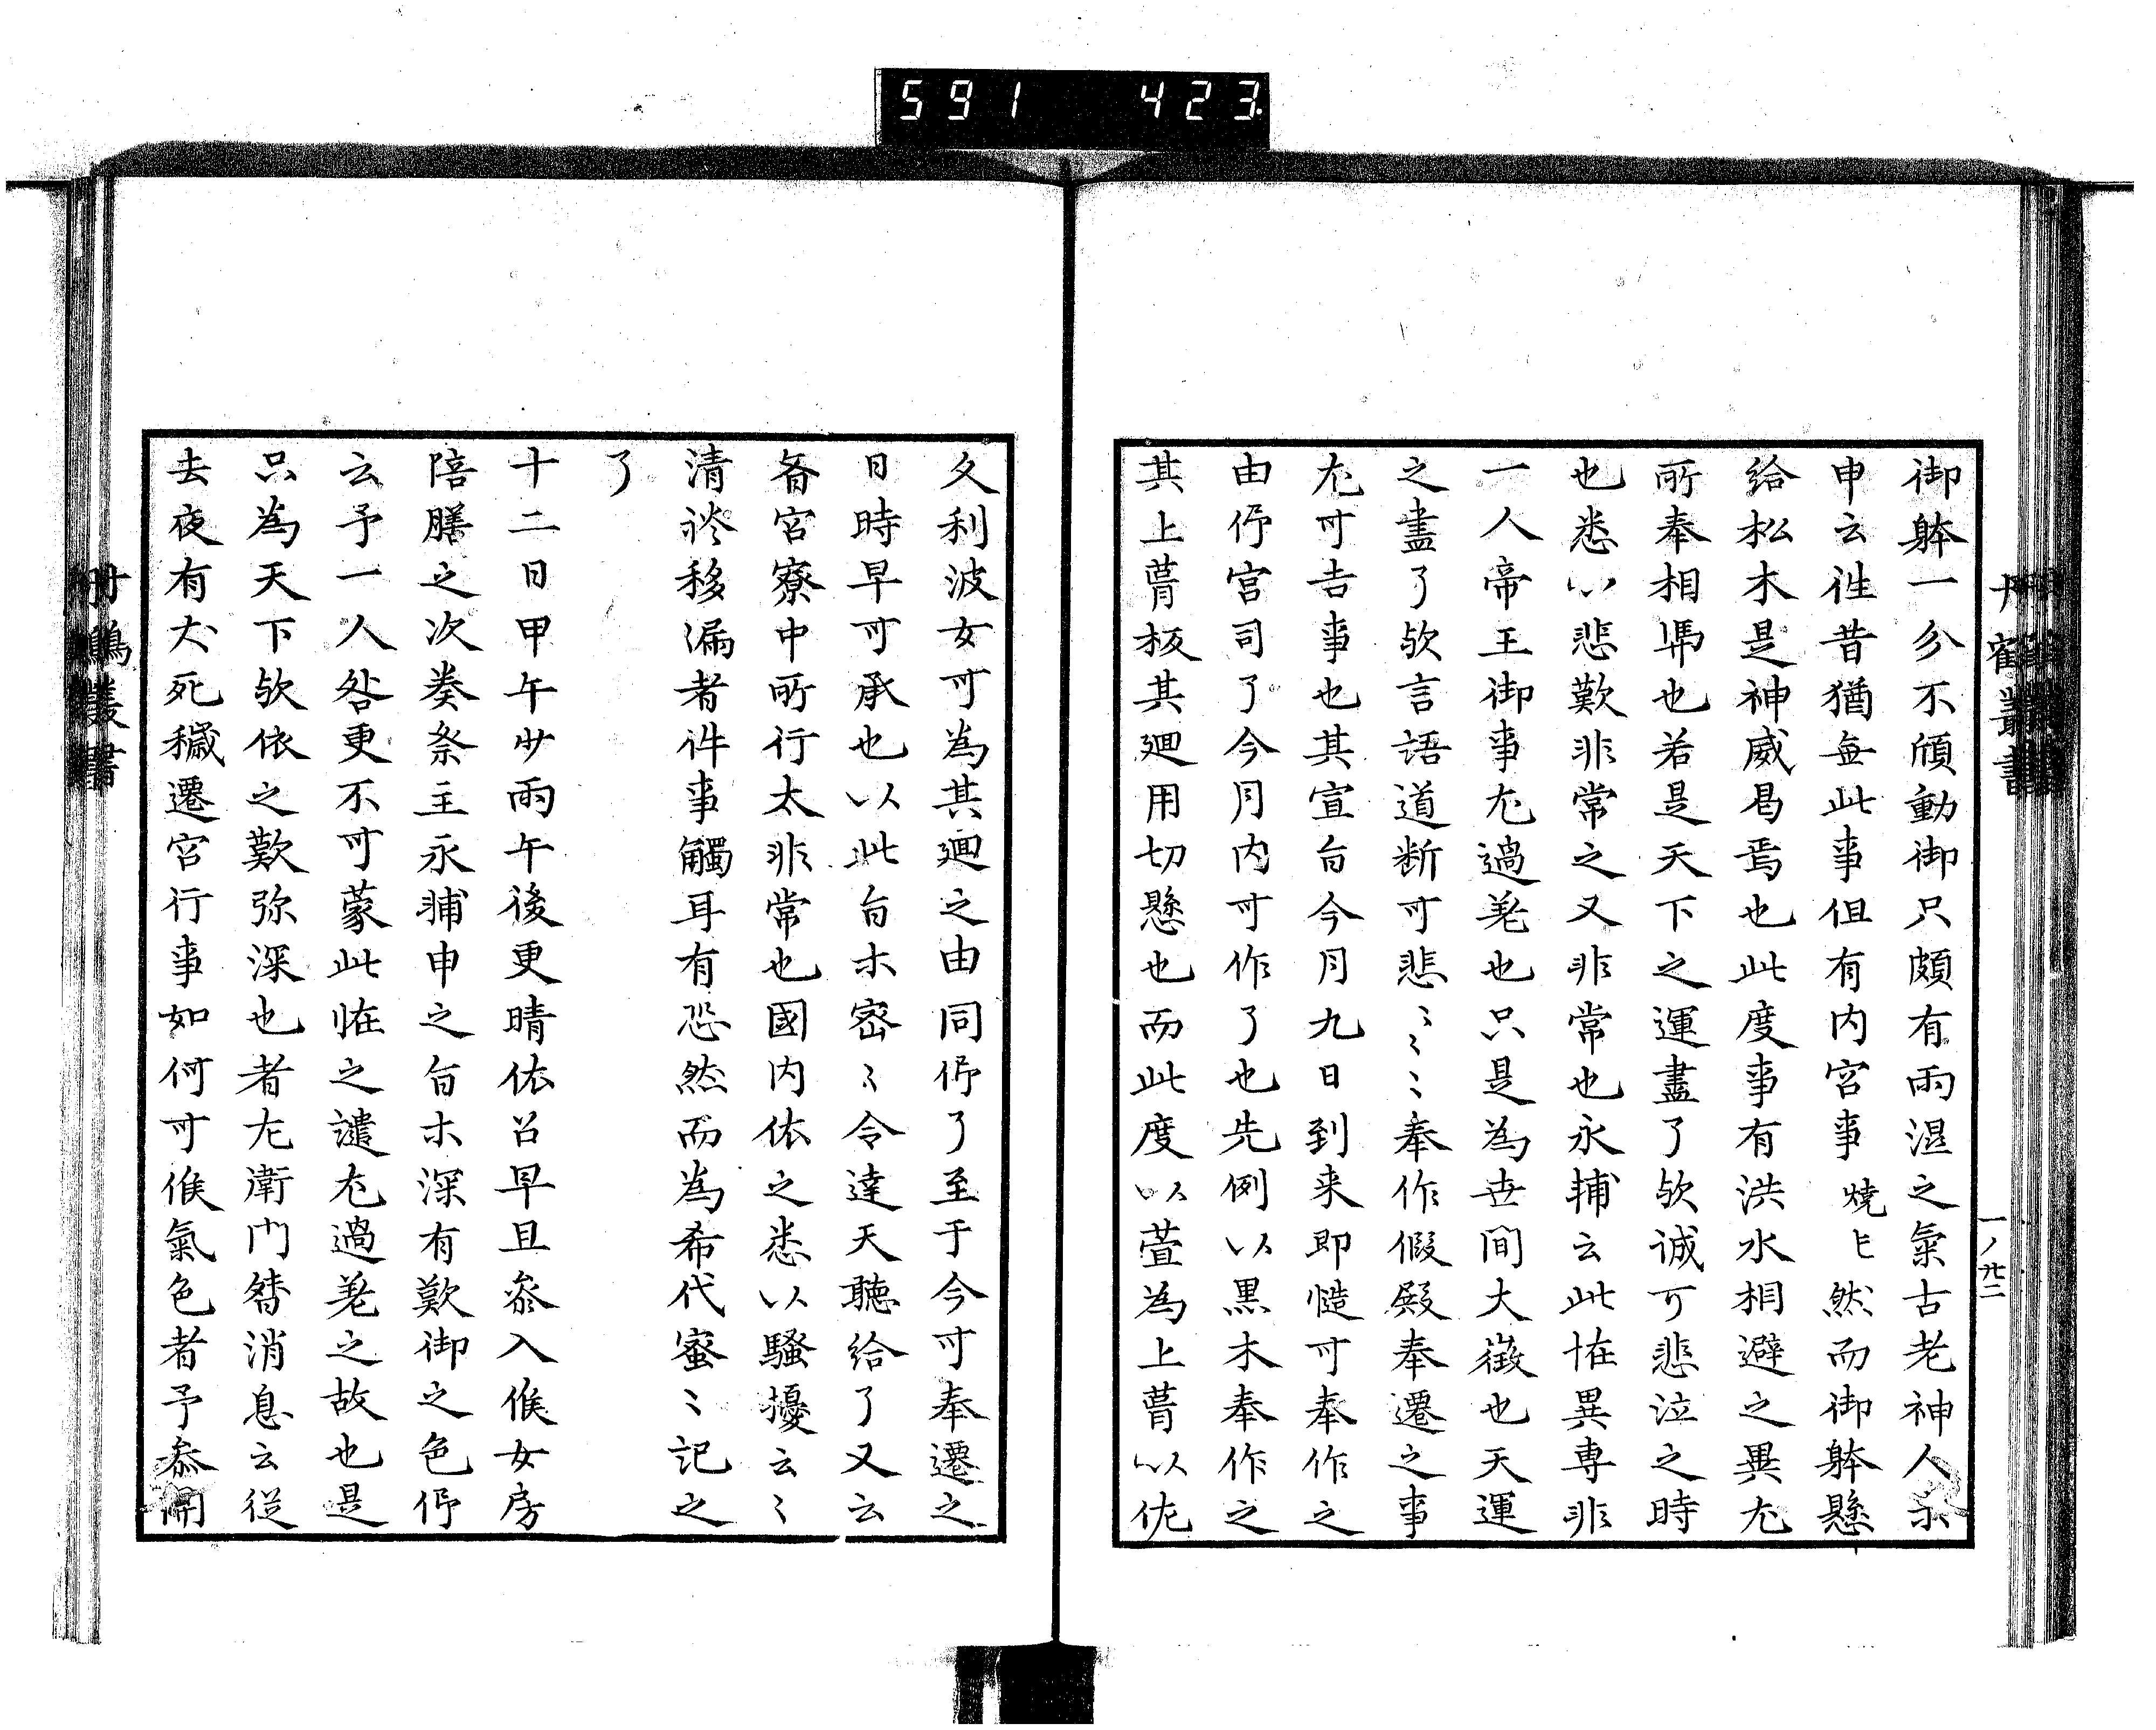 591 423
丹鶴叢書
一ノ廿二
御躰一分不傾動御只頗有雨湿之氣古老神人示
申云徃昔猶無此事但有内宮事焼亡然而御躰懸
給松木是神威曷焉也此度事有洪水相避之異尤
所奉相馮也若是天下之運盡了欤誠可悲泣之時
也悉以悲歎非常之又非常也永輔云此恠異専非
一人帝王御事尤過差也只是為世間大徴也天運
之盡了欤言語道断可悲〻〻〻奉作假殿奉遷之事
尤可吉事也其宣旨今月九日到来即慥可奉作之
由仰宮司了今月内可作了也先例以黒木奉作之
其上葺板其廻用切懸也而此度以萱為上葺以佐
久利波女可為其廻之由同仰了至于今可奉遷之
日時早可承也以此旨等密〻令達天聴給了又云
斎宮寮中所行太非常也國内依之悉以騒擾云〻
清祓移漏者件事觸耳有恐然而為希代蜜〻記之
了
十二日甲午少雨午後更晴依召早旦参入候女房
陪膳之次奏祭主永輔申之旨等深有歎御之色仰
云予一人咎更不可蒙此恠之譴尤過差之故也是
只為天下欤依之歎弥深也者左衛門督消息云従
去夜有犬死穢遷宮行事如何可候氣色者予奏聞
丹鶴叢書